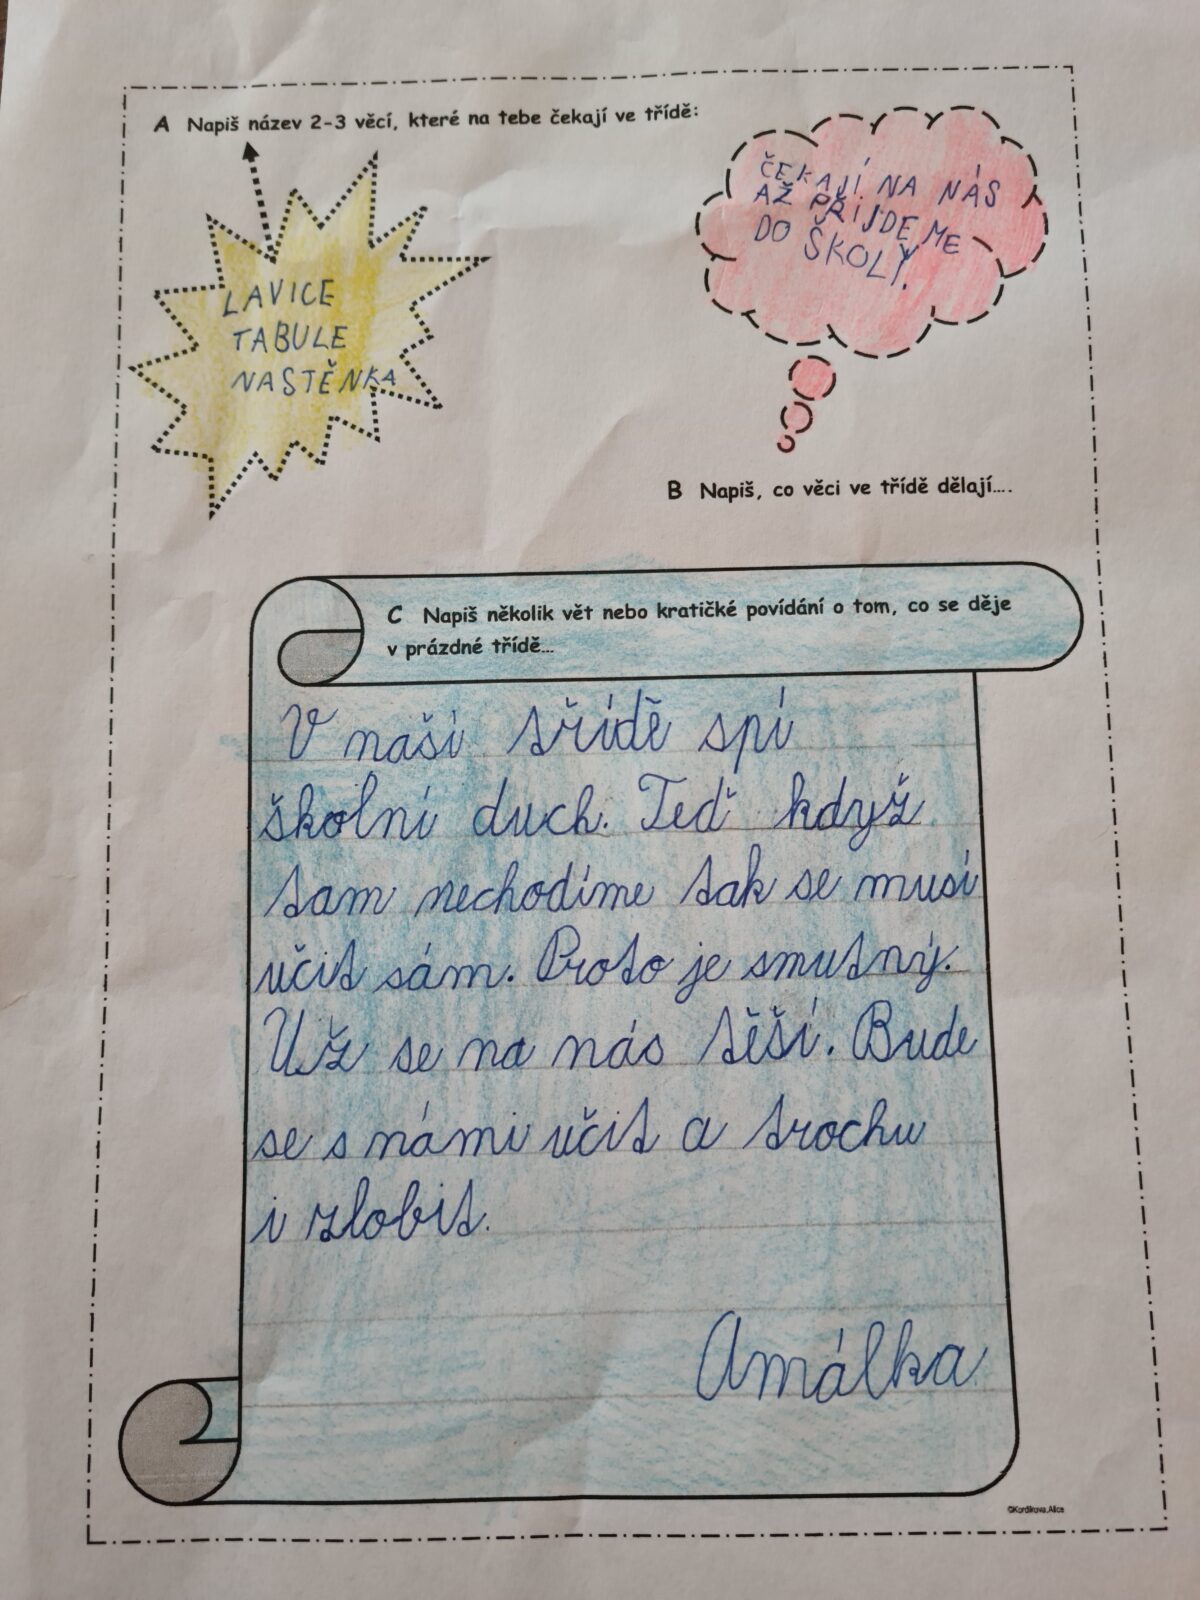 A Napiš název 2-3 věcí, které na tebe čekají ve třídě:
LAVICE
TABULE
NASTĚNKA
ČEKAJÍ NA NÁS
AŽ PŘIJDEME
DO ŠKOLY.
B Napiš, co věci ve třídě dělají....
C Napiš několik vět nebo kratičké povídání o tom, co se děje
v prázdné třídě...
V naší třídě spí
školní duch. Teď když
tam nechodíme tak se musí
učit sám. Proto je smutný.
Už se na nás těší. Bude
se s námi učit a trochu
i zlobit.
Amálka
©Kordikova.Alice